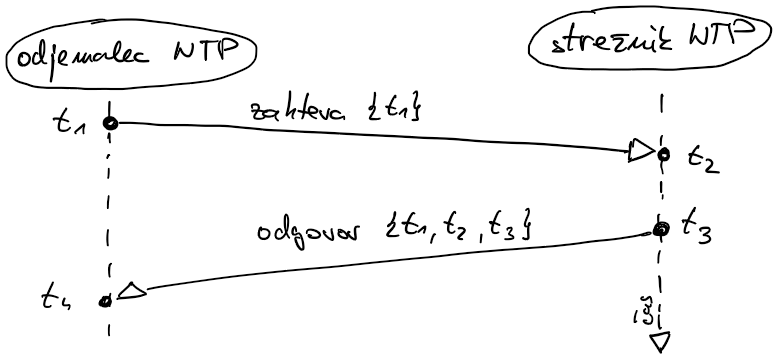 odjemalec NTP
strežnik NTP
t1
zahteva {t1}
t2
odgovor {t1, t2, t3}
t3
t4